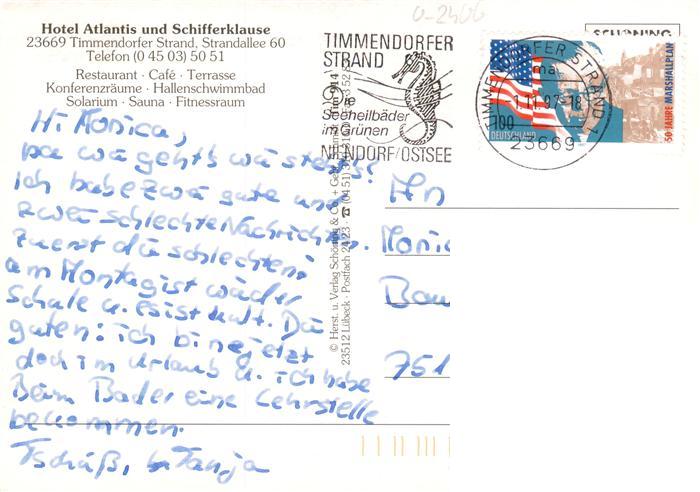 Hotel Atlantis und Schifferklause
23669 Timmendorfer Strand, Strandallee 60
Telefon (0 45 03) 50 51
Restaurant · Café · Terrasse
Konferenzräume · Hallenschwimmbad
Solarium · Sauna · Fitnessraum
Hi Monica,
na wie geht's wie steht's?
Ich habe zwei gute und
zwei schlechte Nachrichten.
Zuerst die schlechten:
am Montag ist wieder
Schule u. es ist kalt. Die
guten: ich bin jetzt
doch im Urlaub u. ich habe
Beim Bader eine Lehrstelle
bekommen.
Tschüß, Tanja
© Herst. u. Verlag Schöning & Co. + Ge
23512 Lübeck · Postfach 24 23 · ☎ (04 51)
0-2406
TIMMENDORFER
STRAND
Die
Seeheilbäder
im Grünen
NIENDORF/OSTSEE
TIMMENDORFER STRAND 1
ma
-1.11.97-18
23669
100
DEUTSCHLAND
50 JAHRE MARSHALLPLAN
SCHÖNING
An
Monic
Bau
751